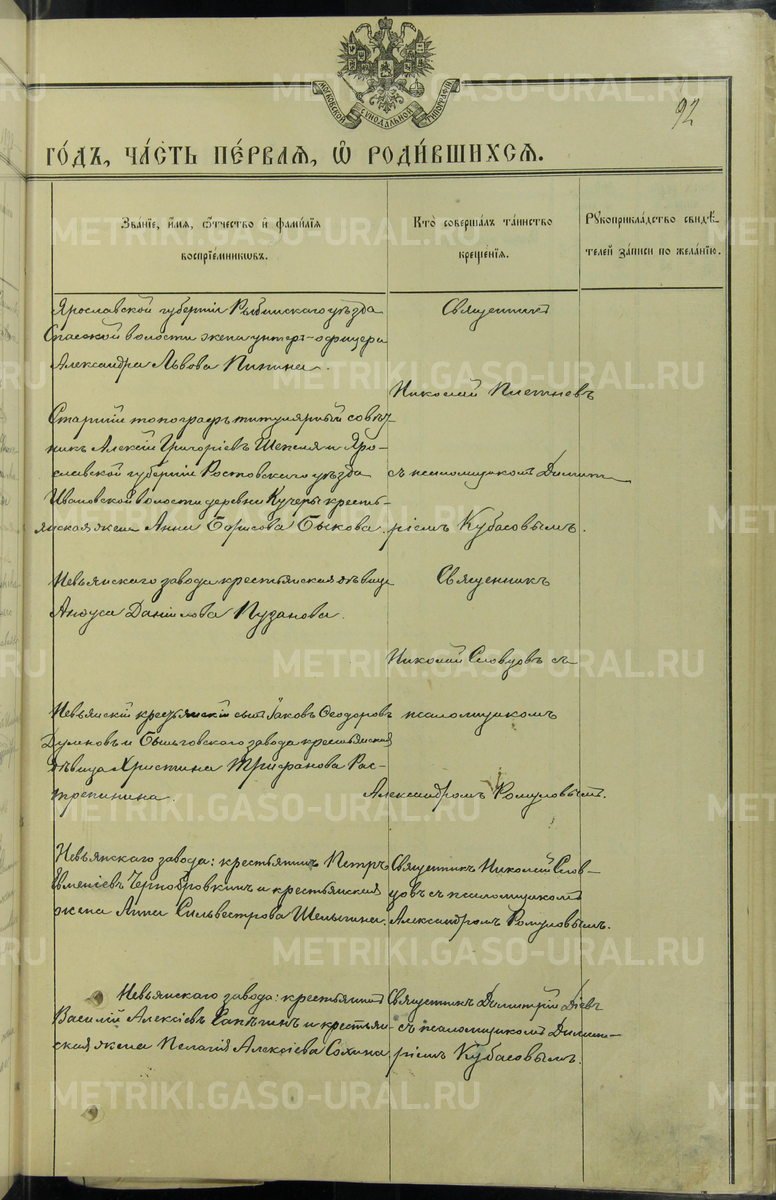 МОСКОВСКОЙ СѴНОДАЛЬНОЙ ТИПОГРАФІИ
92
ГО́ДЪ, ЧА́СТЬ ПЕ́РВАЯ, Ѡ҆ РОДИ́ВШИХСЯ.
Зва́ніе, и҆́мя, ѻ҆́тчество и҆ фами́лія
воспріе́мникѡвъ.
Кто̀ соверша́лъ та́инство
креще́нія.
Рꙋкоприкла́дство свидѣ́-
телей за́писи по жела́нію.
Ярославской губерніи Рыбинскаго уѣзда
Спасской волости жена унтеръ-офицера
Александра Львова Пипина.
Священникъ
Николай Плетневъ
Старшій топографъ титулярный совѣт-
никъ Алексій Григоріевъ и Яро-
славской губерніи Ростовскаго уѣзда
Ивановской волости деревни Кучеры кресть-
янская жена Анна Борисова Быкова.
съ псаломщикомъ Димит-
ріемъ Кубасовымъ.
Невьянскаго завода крестьянская дѣвица
Анфуса Даніилова Пузанова.
Священникъ
Николай Словцовъ съ
Невьянскій крестьянскій сынъ Іаковъ Ѳеодоровъ
Думновъ и Быньговскаго завода крестьянская
дѣвица Христина Трифанова Рас-
трепинина.
псаломщикомъ
Александромъ Ромуловымъ.
Невьянскаго завода: крестьянинъ Петръ
Евменіевъ Чернобровкинъ и крестьянская
жена Анна Сильвестрова Шелыгина.
Священникъ Николай Слов-
цовъ съ псаломщикомъ
Александромъ Ромуловымъ.
Невьянскаго завода: крестьянинъ
Василій Алексіевъ Сапѣгинъ и крестьян-
ская жена Пелагія Алексіева Сохина
Священникъ Димитрій Діевъ
съ псаломщикомъ Димит-
ріемъ Кубасовымъ.
METRIKI.GASO-URAL.RU